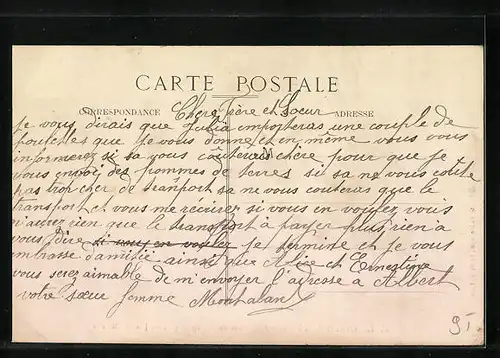 CARTE POSTALE
CORRESPONDANCE Chere Frère et Soeur ADRESSE
Je vous dirais que Julia emporteras une couple de
que je vous donne et en même vous vous
informerez si sa vous couterais chère pour que je
vous envoi des pommes de terres si sa ne vous coute
pas trop cher de tranport sa ne vous couteras que le
transport et vous me récrirez si vous en voulez vous
n'aurez rien que le transport a payer plus rien a
vous dire si vous en voulez je termine et je vous
embrasse d'amitiée ainsi que Alice et Ernestine
vous serez aimable de m'envoyer l'adresse a Albert
votre soeur femme Montalant
9.-